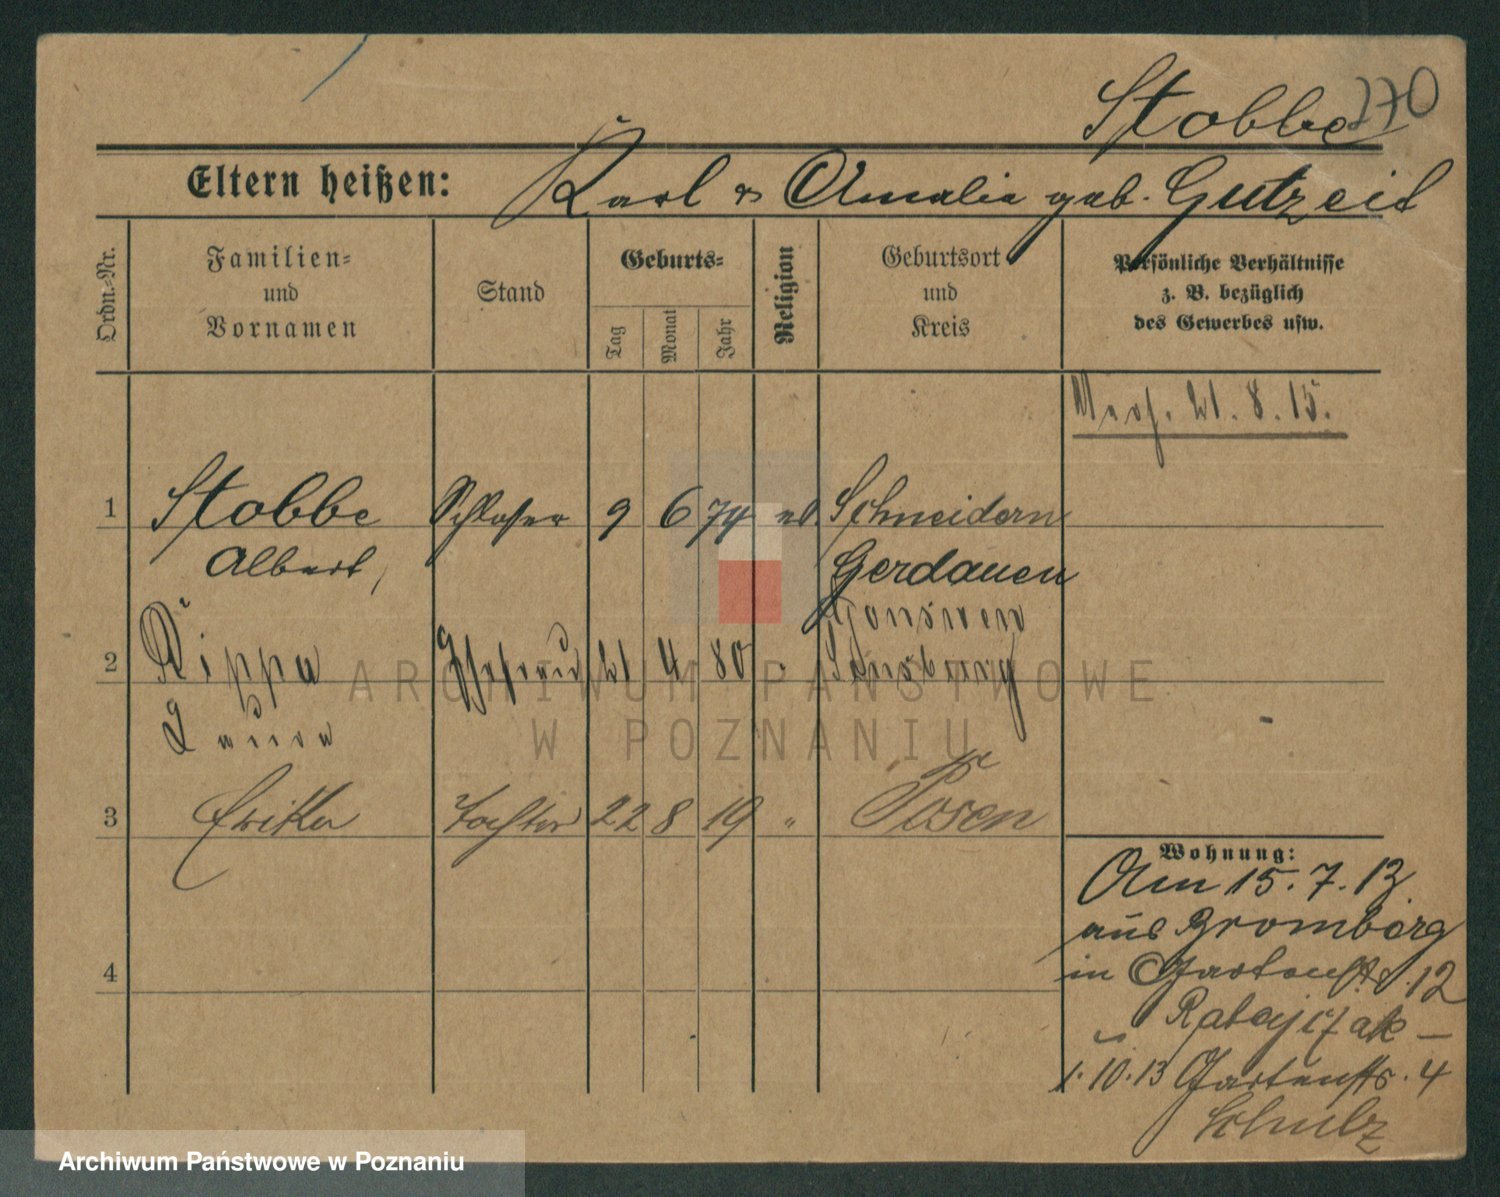 Stobbe 270
Eltern heißen: Karl & Amalie geb. Gutzeit
Ordn.-Nr.
Familien-
und
Vornamen
Stand
Geburts-
Tag
Monat
Jahr
Religion
Geburtsort
und
Kreis
Persönliche Verhältnisse
z. B. bezüglich
des Gewerbes usw.
21. 8. 15.
1 Stobbe Schlosser 9 6 74 ev. Schneidern
Albert, Gerdauen
2 Rippa Ehefrau 21 4 80 " Sensburg
Laura
3 Erika Tochter 22 8 19 " Posen
4
Wohnung:
Am 15. 7. 13
aus Bromberg
in Gartenstr. 12
Ratajczak
1. 10. 13 Gartenstr. 4
Schulz
ARCHIWUM PAŃSTWOWE
W POZNANIU
Archiwum Państwowe w Poznaniu